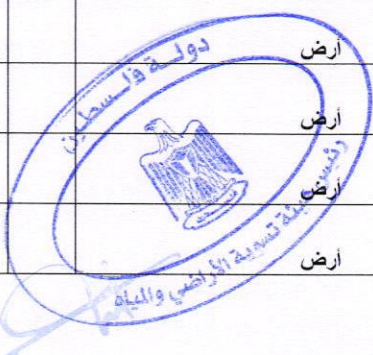 أرض
أرض
أرض
أرض
دولة فلسطين
رئيس هيئة تسوية الأراضي والمياه